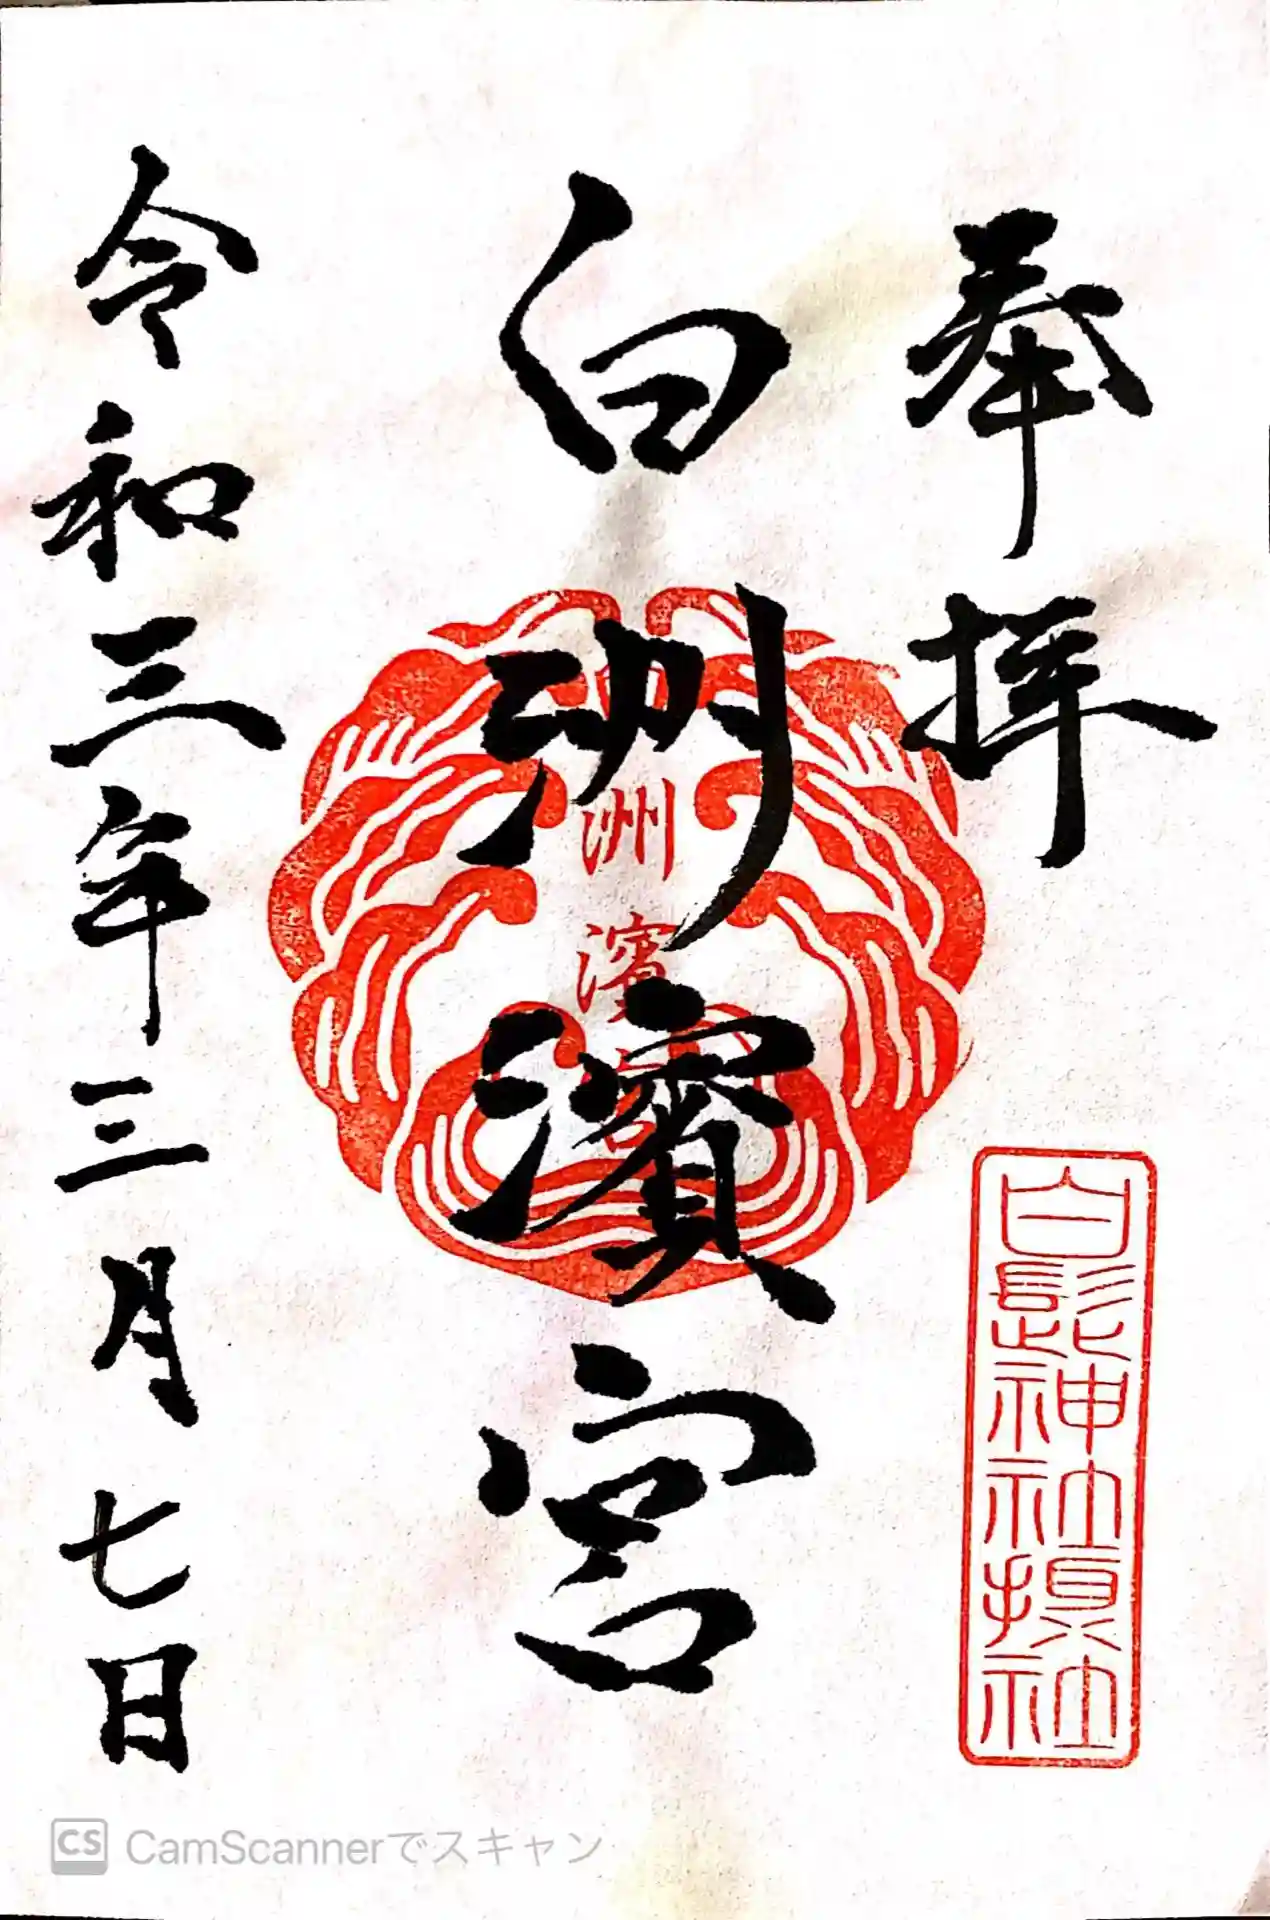 奉拝
白髭神社摂社
白洲濱宮
洲濱宮
令和三年三月七日
CS CamScannerでスキャン